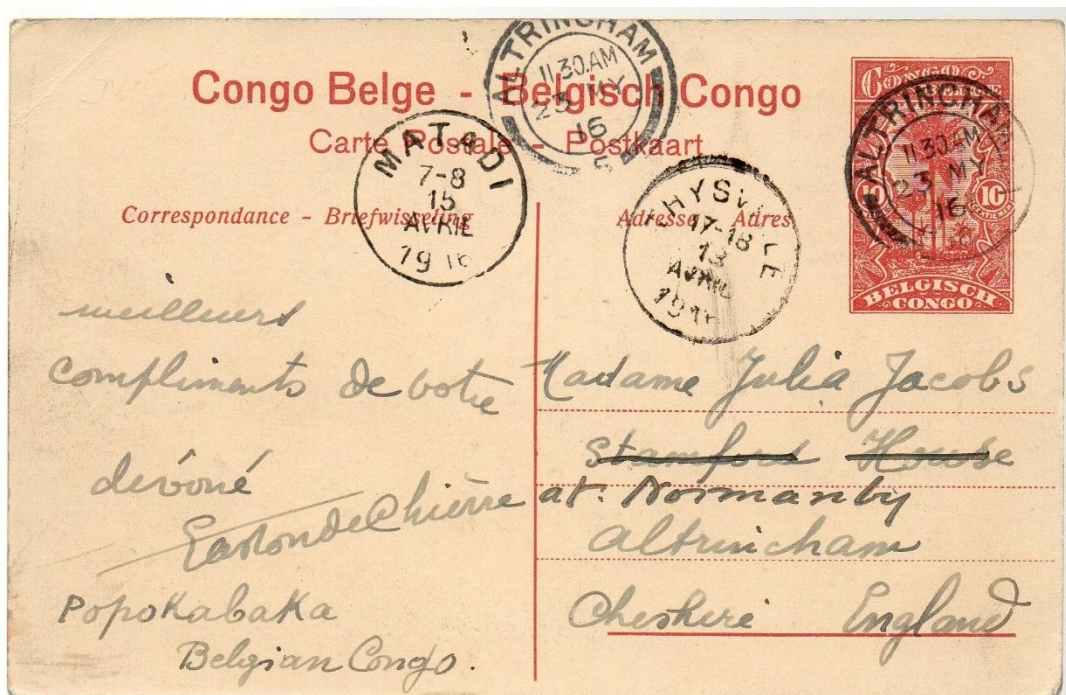 Congo Belge - Belgisch Congo
Carte Postale - Postkaart
Correspondance - Briefwisseling
Adresse - Adres
ALTRINCHAM
11.30.AM
23 MY
16
5
MATADI
7-8
15
AVRIL
1916
THYSVILLE
17-18
13
AVRIL
1916
ALTRINCHAM
11.30.AM
23 MY
16
10
10
BELGISCH
CONGO
meilleurs
compliments de votre
dévoué
Popokabaka
Belgian Congo.
Madame Julia Jacobs
Stamford House
at. Normanby
Altrincham
Cheshire England